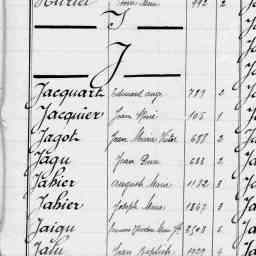 J
J
Jacquart Edouard Ange 729 2
Jacquier Jean René 105 1
Jagot Jean Marie Victor 688 2
Jagu Jean Pierre 688 2
Jahier Auguste Marie 1182 3
Jahier Joseph Marie 1867 3
Jaigu 2508 6
Jalu Jean Baptiste 1929 4